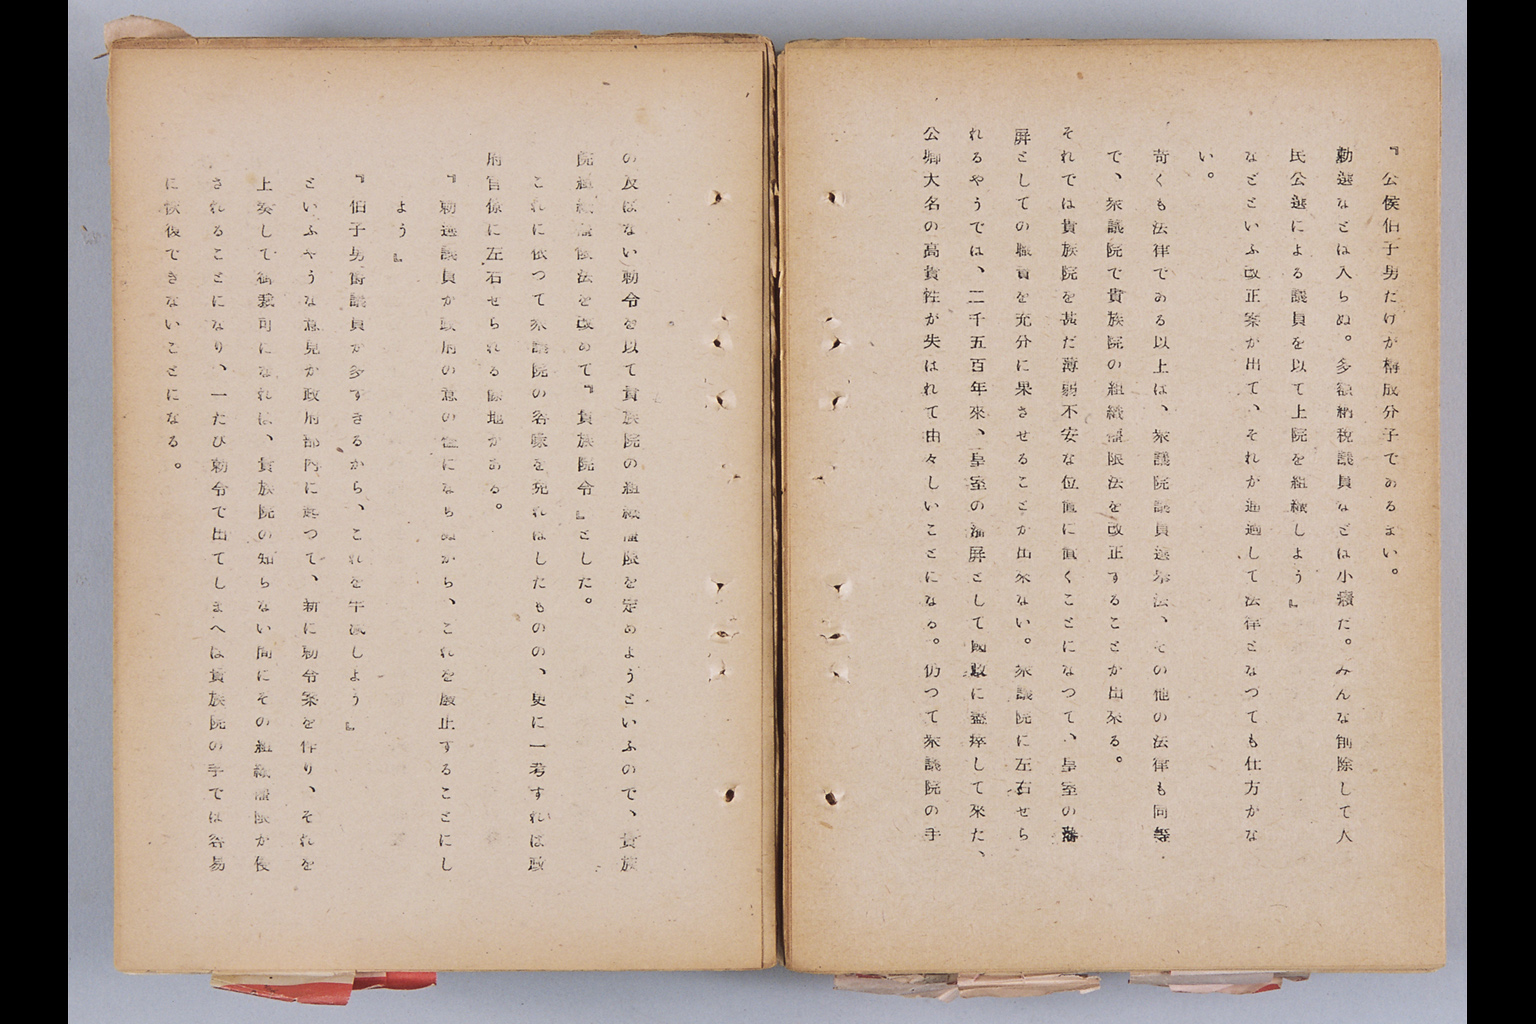 『公侯伯子男だけが構成分子であるまい。
勅選などは入らぬ。多額納税議員などは小癪だ。みんな削除して人
民公選による議員を以て上院を組織しよう』
などといふ改正案が出て、それが通過して法律となつても仕方がな
い。
苛くも法律である以上は、衆議院議員選挙法、その他の法律も同等
で、衆議院で貴族院の組織権限法を改正することが出来る。
それでは貴族院を甚だ薄弱不安な位置に置くことになつて、皇室の藩
屏としての職責を充分に果させることが出来ない。衆議院に左右せら
れるやうでは、二千五百年來、皇室の藩屏として國政に盡瘁して來た、
公卿大名の高貴性が失はれて由々しいことになる。仍つて衆議院の手
の及ばない勅令を以て貴族院の組織権限を定めようといふので、貴族
院組織権限法を改めて『貴族院令』とした。
これに依つて衆議院の容喙を免れはしたものの、更に一考すれば政
府官僚に左右せられる餘地がある。
『勅選議員が政府の意の儘にならぬから、これを廢止することにし
よう。』
『伯子男爵議員が多すぎるから、これを半減しよう』
といふやうな意見が政府部内に起つて、新に勅令案を作り、それを
上奏して御裁可になれば、貴族院の知らない間にその組織権限が侵
されることになり、一たび勅令で出てしまへば貴族院の手では容易
に恢復できないことになる。